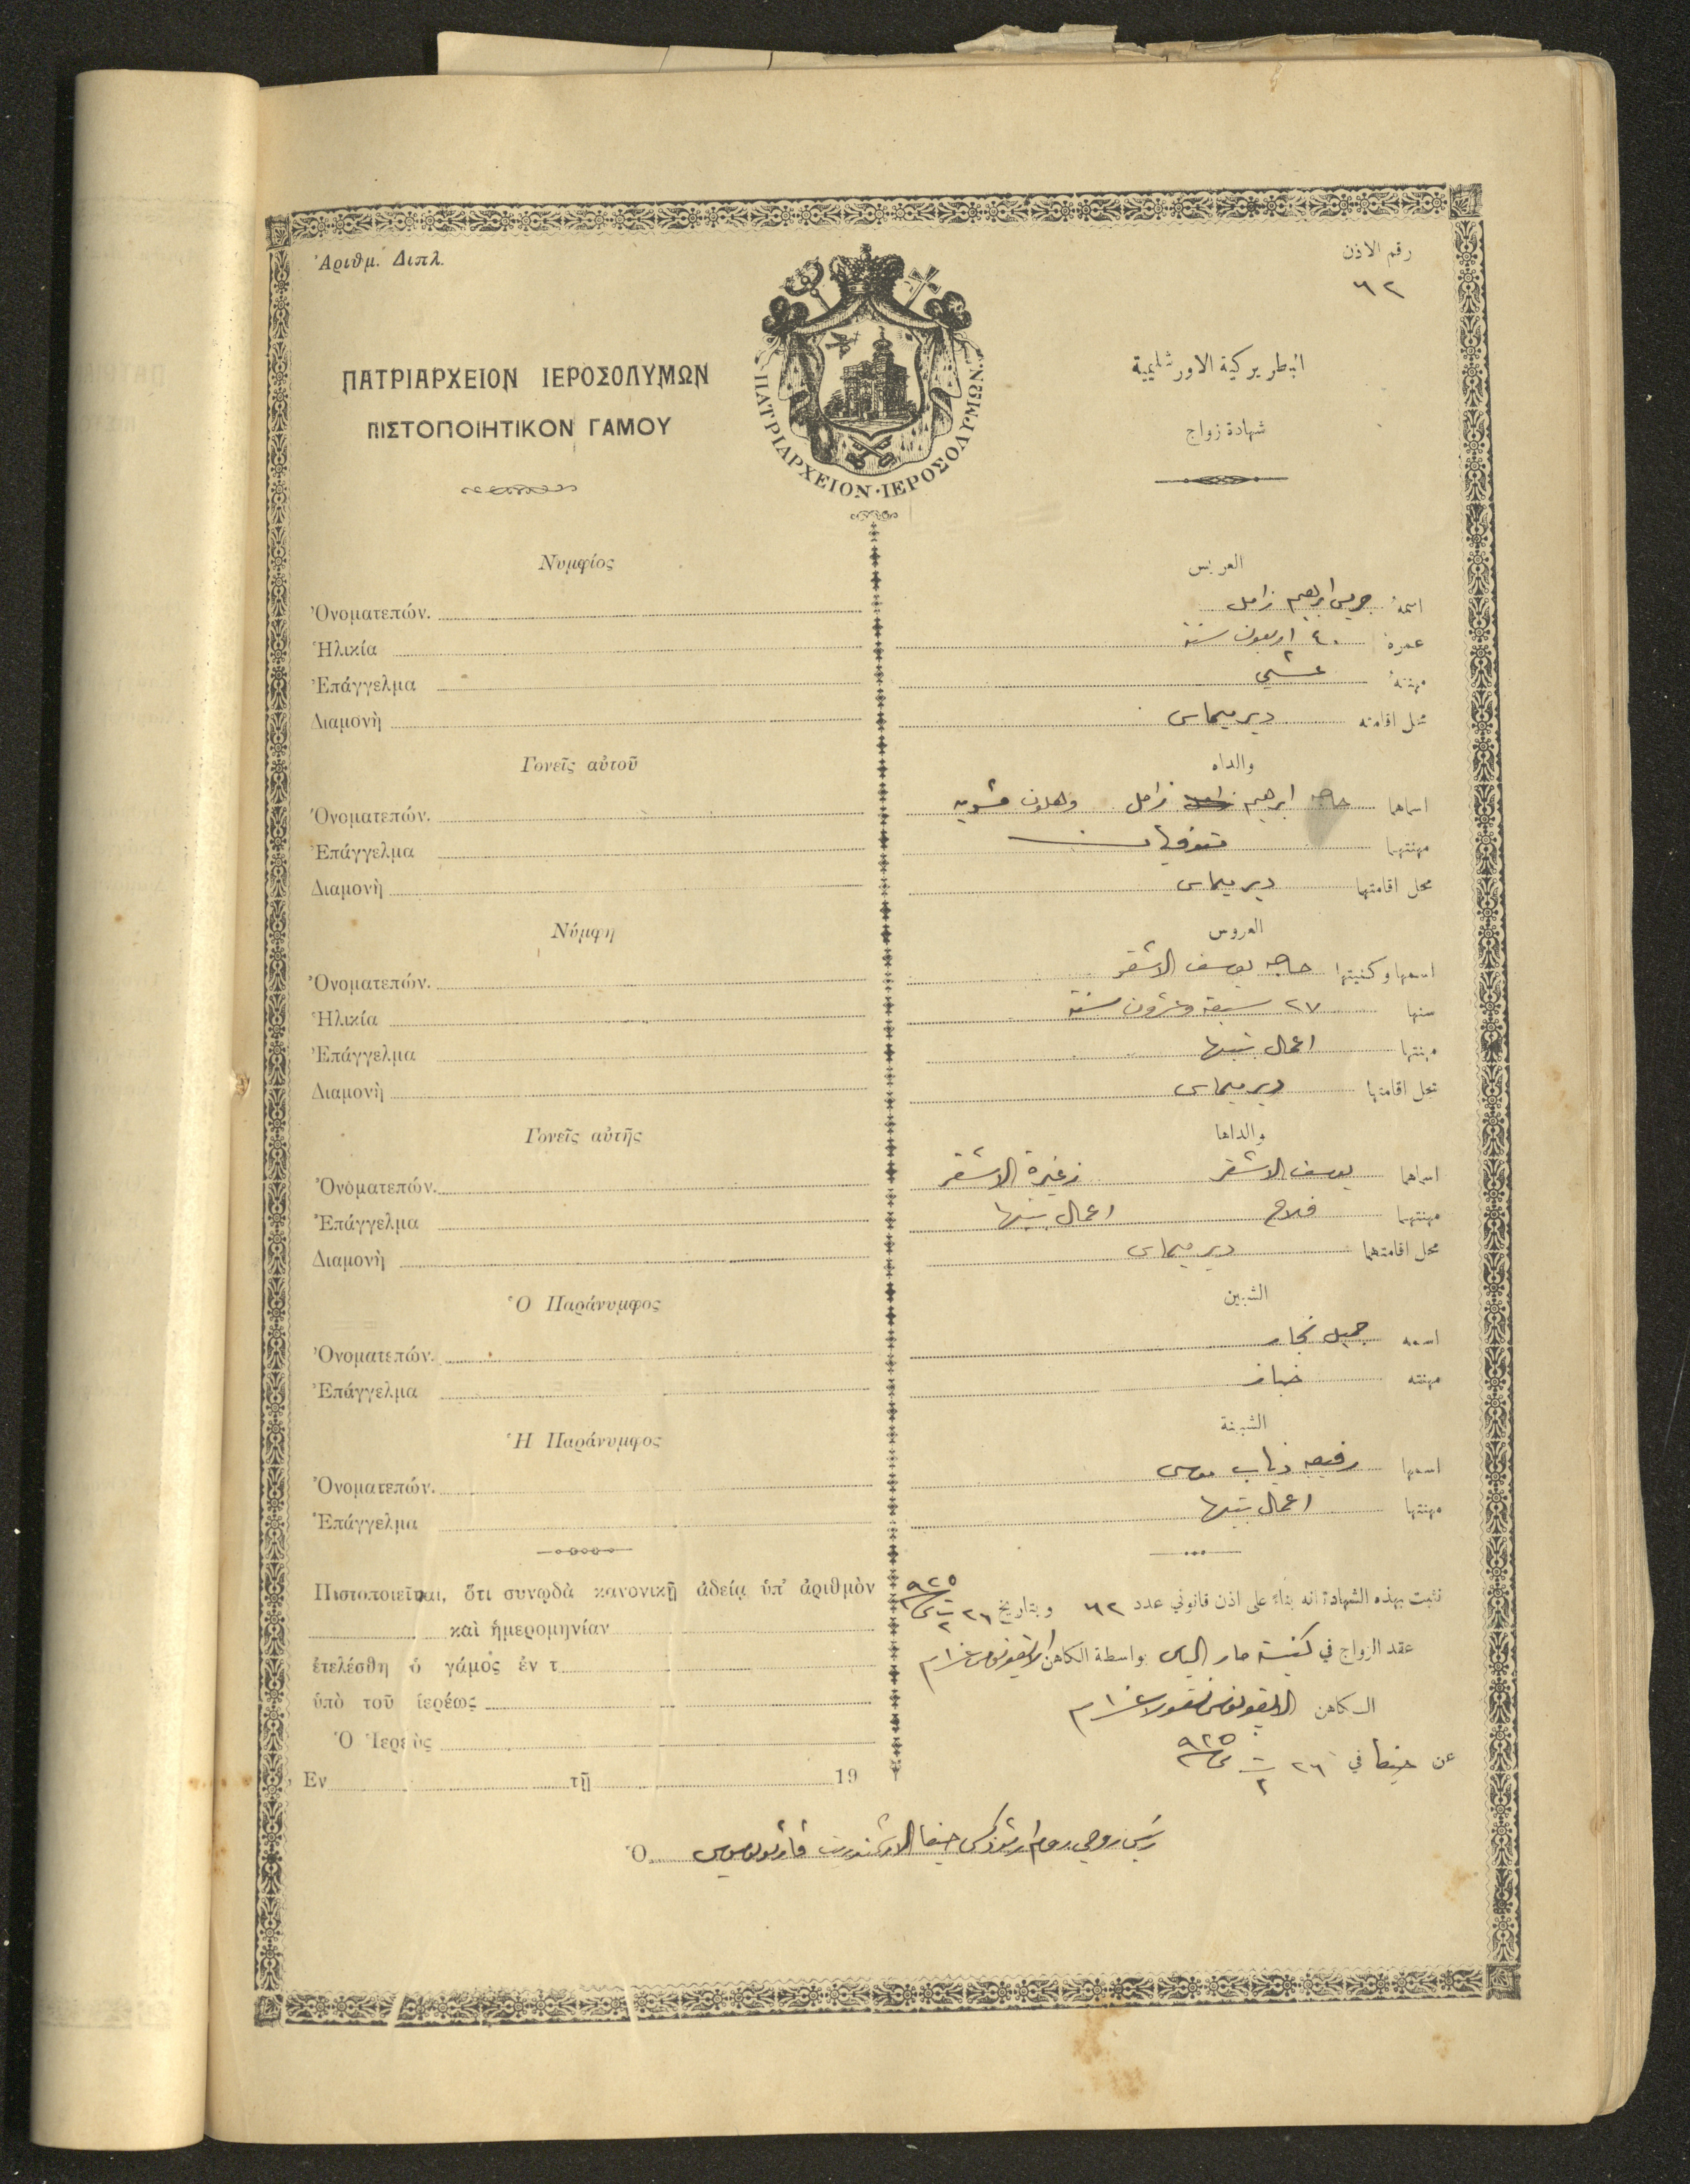 Ἀριθμ. Διπλ.
رقم الاذن
٦٢
ΠΑΤΡΙΑΡΧΕΙΟΝ ΙΕΡΟΣΟΛΥΜΩΝ
ΠΙΣΤΟΠΟΙΗΤΙΚΟΝ ΓΑΜΟΥ
ΠΑΤΡΙΑΡΧΕΙΟΝ·ΙΕΡΟΣΟΛΥΜΩΝ.
البطريركية الاورشليمية
شهادة زواج
Νυμφίος
العريس
Ὀνοματεπών.
اسمهُ جريس ابرهيم زامل
Ἡλικία
عمرهُ ٤٠ اربعون سنة
Ἐπάγγελμα
مهنتهُ عشي
Διαμονὴ
محل اقامته ديرميماس
Γονεῖς αὐτοῦ
والداه
Ὀνοματεπών.
اسماهما ابرهيم زامل وهلون
Ἐπάγγελμα
مهنتهما متوفيان
Διαμονὴ
محل اقامتهما ديرميماس
Νύμφη
العروس
Ὀνοματεπών.
اسمها وكنيتها يوسف الاشقر
Ἡλικία
سنها ٢٧ سبعة وعشرون سنة
Ἐπάγγελμα
مهنتها اعمال بيتها
Διαμονὴ
محل اقامتها ديرميماس
Γονεῖς αὐτῆς
والداها
Ὀνοματεπών.
اسماهما يوسف الاشقر زغيرة الاشقر
Ἐπάγγελμα
مهنتهما فلاح اعمال بيتها
Διαμονὴ
محل اقامتهما ديرميماس
Ὁ Παράνυμφος
الشبين
Ὀνοματεπών.
اسمه جميل نجار
Ἐπάγγελμα
مهنته خباز
Ἡ Παράνυμφος
الشبينة
Ὀνοματεπών.
اسمها رفيعه ذياب موسى
Ἐπάγγελμα
مهنتها اعمال بيتها
Πιστοποιεῖται, ὅτι συνῳδὰ κανονικῇ ἀδείᾳ ὑπ' ἀριθμὸν
καὶ ἡμερομηνίαν
ἐτελέσθη ὁ γάμος ἐν τ
ὑπὸ τοῦ ἱερέως
Ὁ Ἱερεὺς
Ἐν τῇ 19
نثبت بهذه الشهادة انه بناءً على اذن قانوني عدد ٦٢ وبتاريخ ٢٦ ت٢ سنة ٩٢٥
عقد الزواج في كنيسة مار الياس بواسطة الكاهن الايقونومس
الكاهن الايقونومس نقولا
عن حيفا في ٢٦ ت٢ سنة ٩٢٥
Ὁ رئيس روحي روم ارثوذكس حيفا الارشمندريت